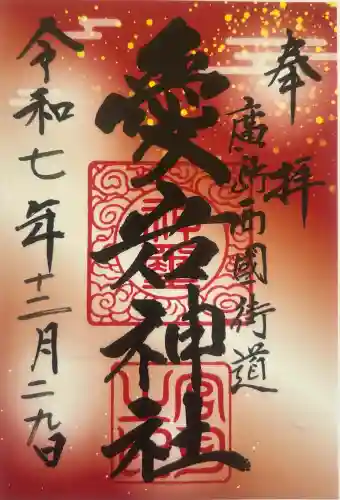 奉拝
廣島西國街道
愛宕神社
令和七年十二月二九日